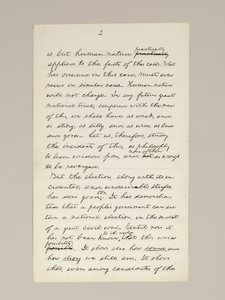 3
is but human nature practically
practically
applied to the facts of the case. What
has occurred in this case, must ever
recur in similar cases. Human nature
will not change. In any future great
national trial, compared with the men
of this, we shall have as weak, and
as strong; as silly and as wise; as bad
and good. Let us, therefore, study
the incidents of this, as philosophy
to learn wisdom from, and none of them as wrongs
to be revenged.
But the election, along with its in-
cidental, and undesirable strife,
has done good, too. It has demonstra-
ted that a people's government can sus-
tain a national election, in the midst
of a great civil war. Until now it
has not been known to the world that this was a
possibility. It shows also how
how strong we still are. It shows
that, even among candidates of the